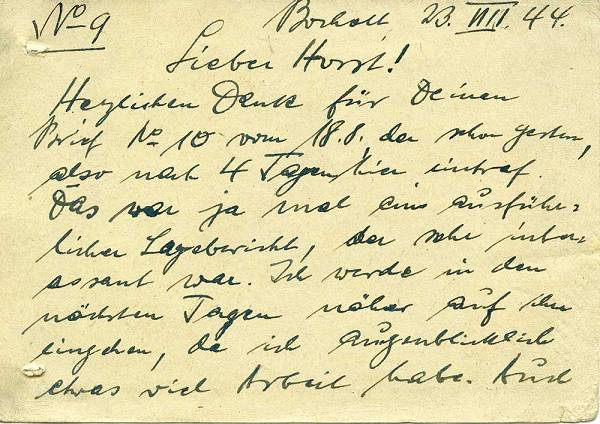 No 9 Bocholt, 23. VIII. 44.
Lieber Horst!
Herzlichen Dank für Deinen
Brief No 10 vom 18.8, der schon gestern,
also nach 4 Tagen hier eintraf.
Das war ja mal ein ausführ=
licher Lagebericht, der sehr inter=
essant war. Ich werde in den
nächsten Tagen näher auf ihn
eingehen, da ich augenblicklich
etwas viel Arbeit habe. Auch